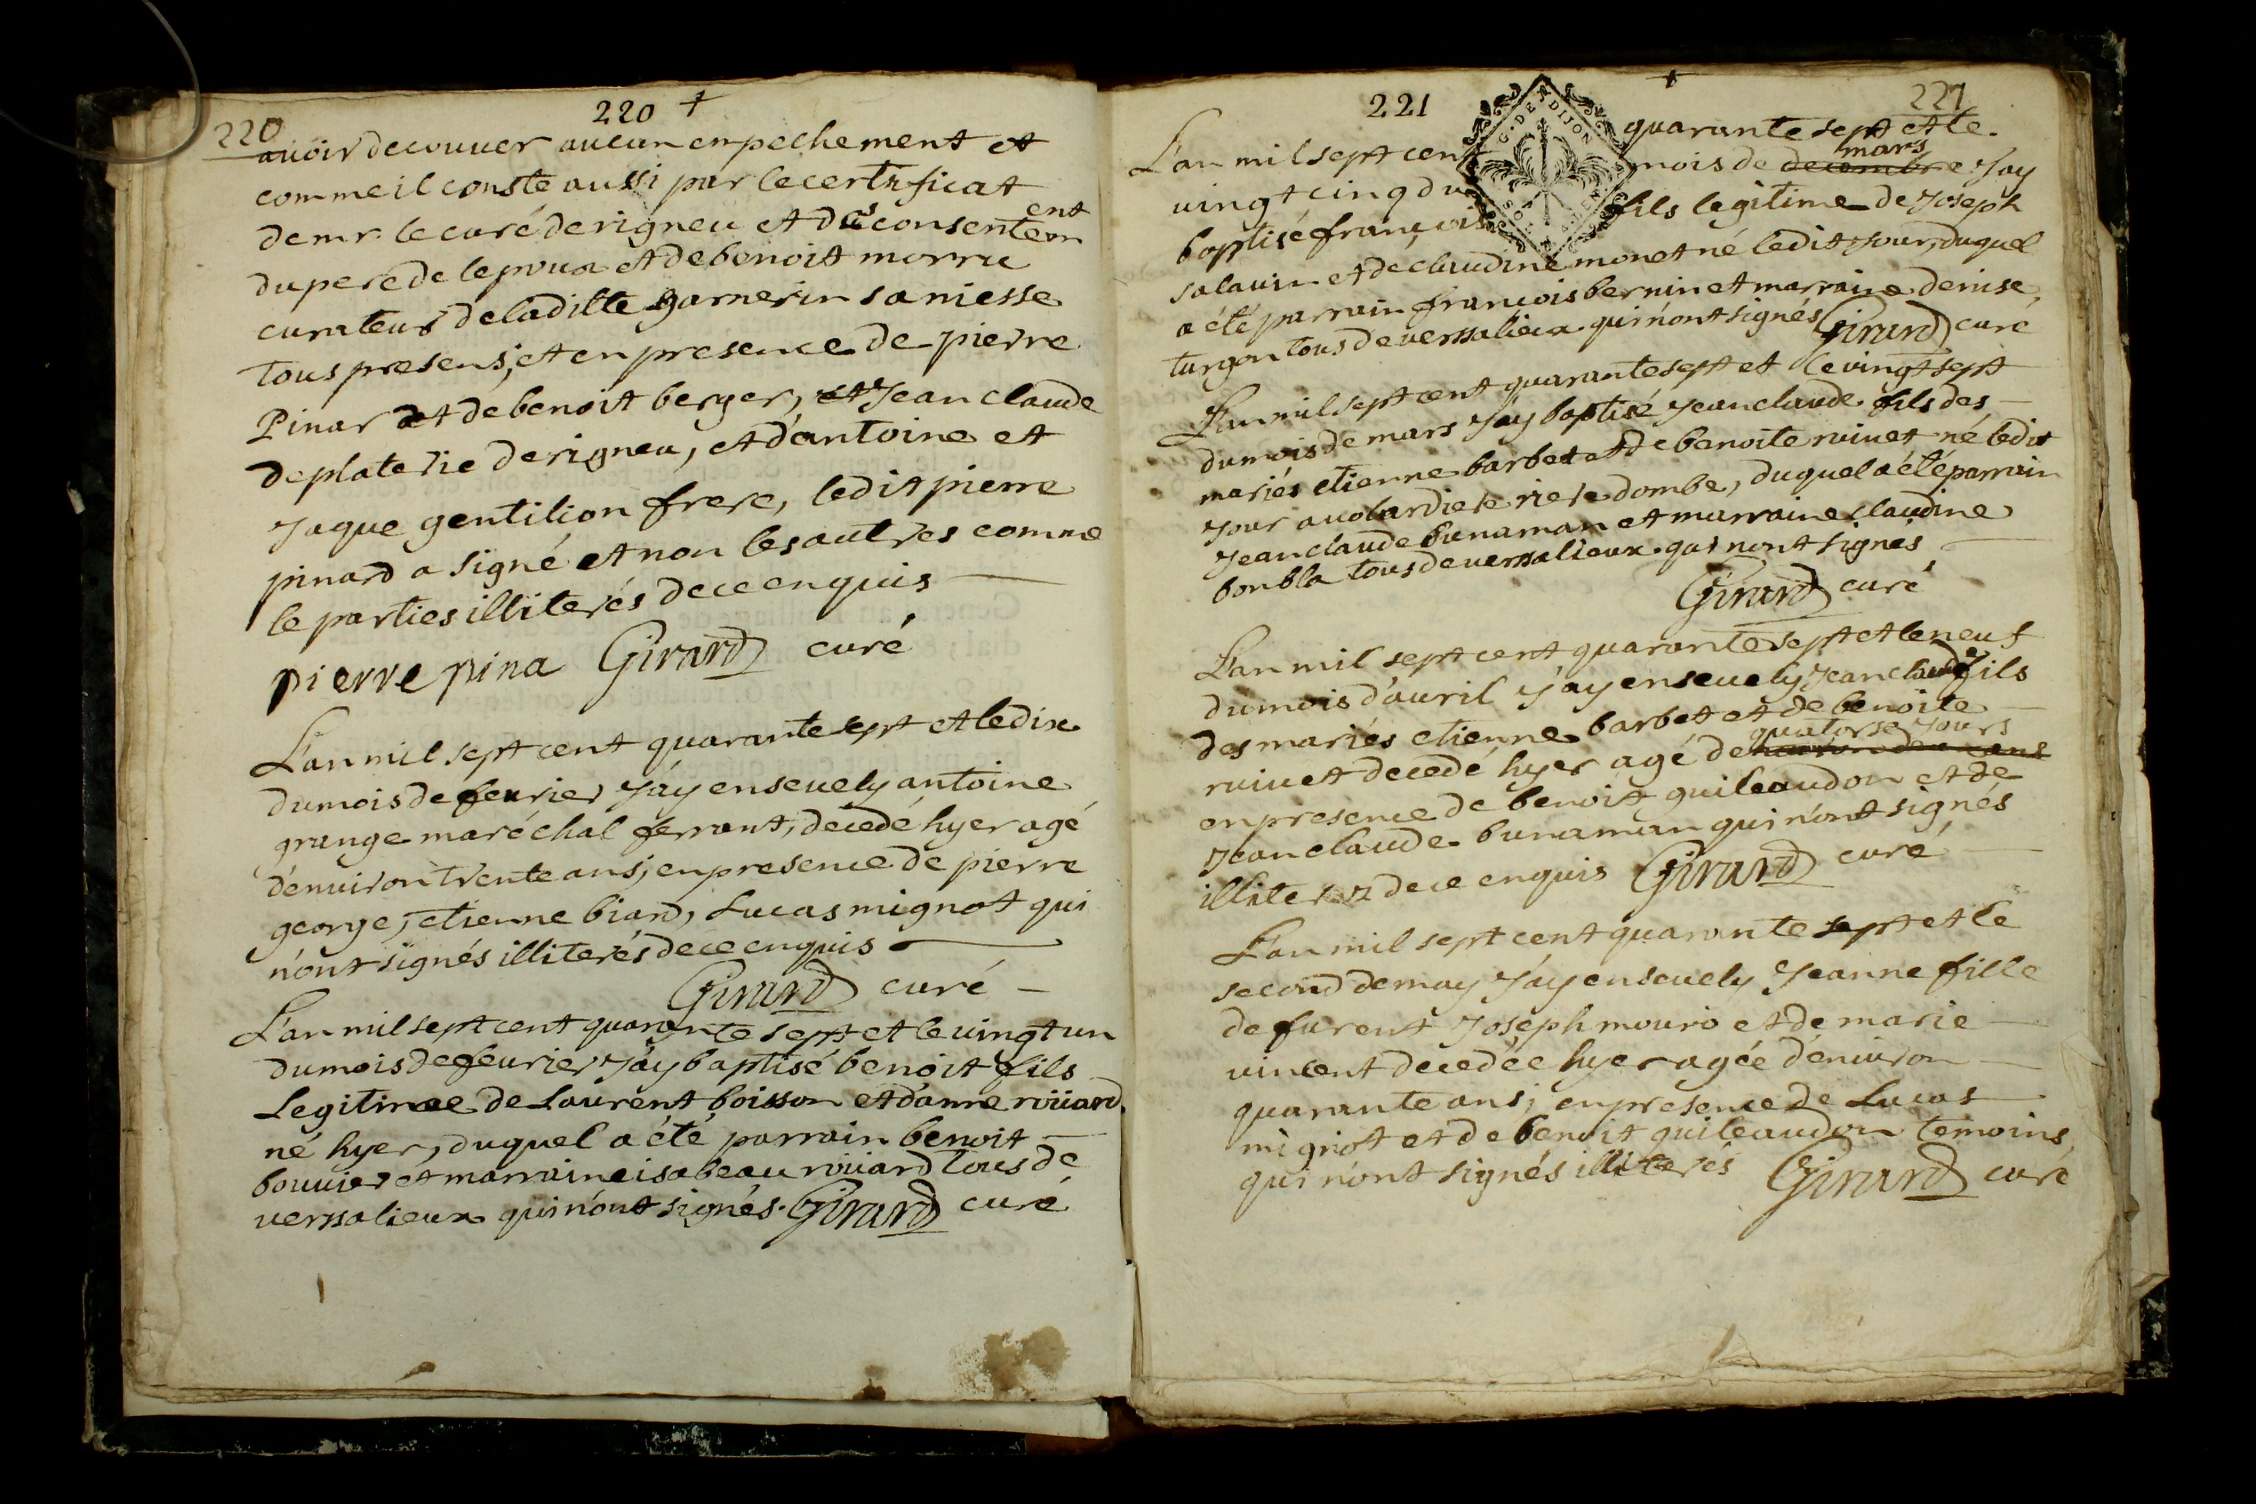 220
220 +
avoir decouver aucun enpechement et
comme il conste aussi par le certificat
de mr. le curé de rigneu et des consentement
du pere de lepoux et de benoit morru
curateur de laditte garnerin sa niesse
tous presens; et en presence de pierre
Pinar et de benoit berger, et Jean claude
de platerie de rigneu, et d'antoine et
Jaque gentilion frere, ledit pierre
pinard a signé et non les autres comme
le parties illiterés de ce enquis
pierre pina Girard curé
L'an mil sept cent quarante sept et le dix
du mois de fevrier J'ay ensevely antoine
grange maréchal ferrant, decedé hyer agé
d'environ trente ans, en presence de pierre
george, etienne biard, Lucas mignot qui
n'ont signés illiterés de ce enquis
Girard curé
L'an mil sept cent quarante sept et le vingt un
du mois de fevrier J'ay baptisé benoit fils
Legitime de Laurent boisson et d'anne roüard
né hyer, duquel a été parrain benoit
bouvier et marraine isabeau roüard tous de
versalieux qui n'ont signés. Girard curé
221
+
221
G. DE DIJON
L'an mil sept cent quarante sept et le
vingt cinq du mois de decembre mars J'ay
baptisé françois fils legitime de Joseph
salavin et de claudine monet né ledit jour, duquel
a été parrain françois bernin et marraine denise
turgon tous de versalieux qui n'ont signés Girard curé
L'an mil sept cent quarante sept et le vingt sept
du mois de mars J'ay baptisé Jean claude fils des
mariés etienne barbet et de benoite ruivet né ledit
Jour a volardiere riere dombe, duquel a été parrain
Jean claude bunaman et marraine claudine
bonbla tous de versalieux qui n'ont signés
Girard curé
L'an mil sept cent quarante sept et le neuf
du mois d'avril J'ay ensevely Jean claude fils
des mariés etienne barbet et de benoite
ruivet decedé hyer agé de quatorse Jours
en presence de benoit guileaudon et de
Jean claude bunaman qui n'ont signés
illiterez de ce enquis Girard curé
L'an mil sept cent quarante sept et le
second de may J'ay ensevely Jeanne fille
de furent Joseph mouro et de marie
vincent decedée hyer agée d'environ
quarante ans, en presence de Lucas
mignot et de benoit guileaudon temoins
qui n'ont signés illiterés Girard curé